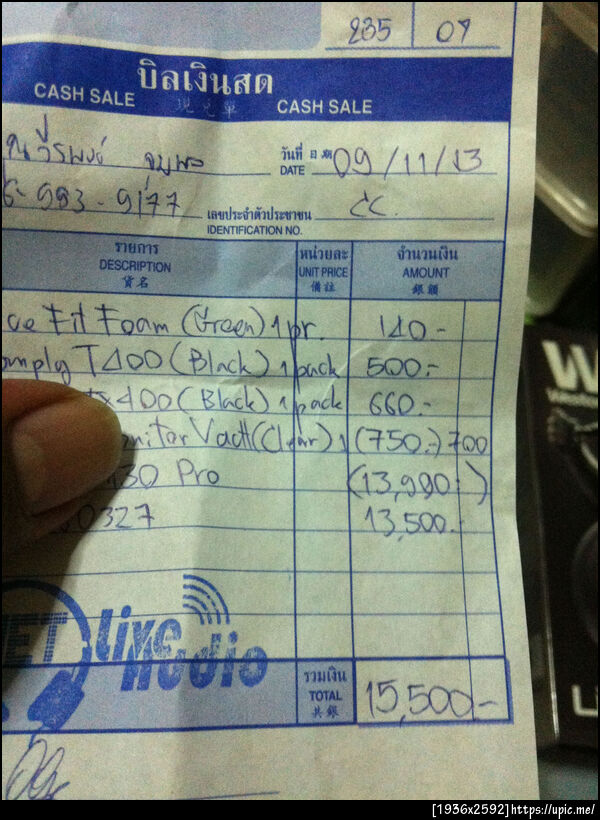 235 07
บิลเงินสด
CASH SALE 現兌單 CASH SALE
วันที่ 日期 DATE 09/11/13
983-9177 เลขประจำตัวประชาชน cc.
IDENTIFICATION NO.
รายการ หน่วยละ จำนวนเงิน
DESCRIPTION UNIT PRICE AMOUNT
貨名 備註 銀額
Fit Foam (Green) 1 pr. 140.-
omply T400 (Black) 1 pack 500.-
Tx400 (Black) 1 pack 660.-
nitor Vault (Clear) 1 (750.-) 700
30 Pro (13,990.-)
0327 13,500.-
Live Audio
รวมเงิน
TOTAL 15,500.-
共銀
W
[1936x2592]https://upic.me/